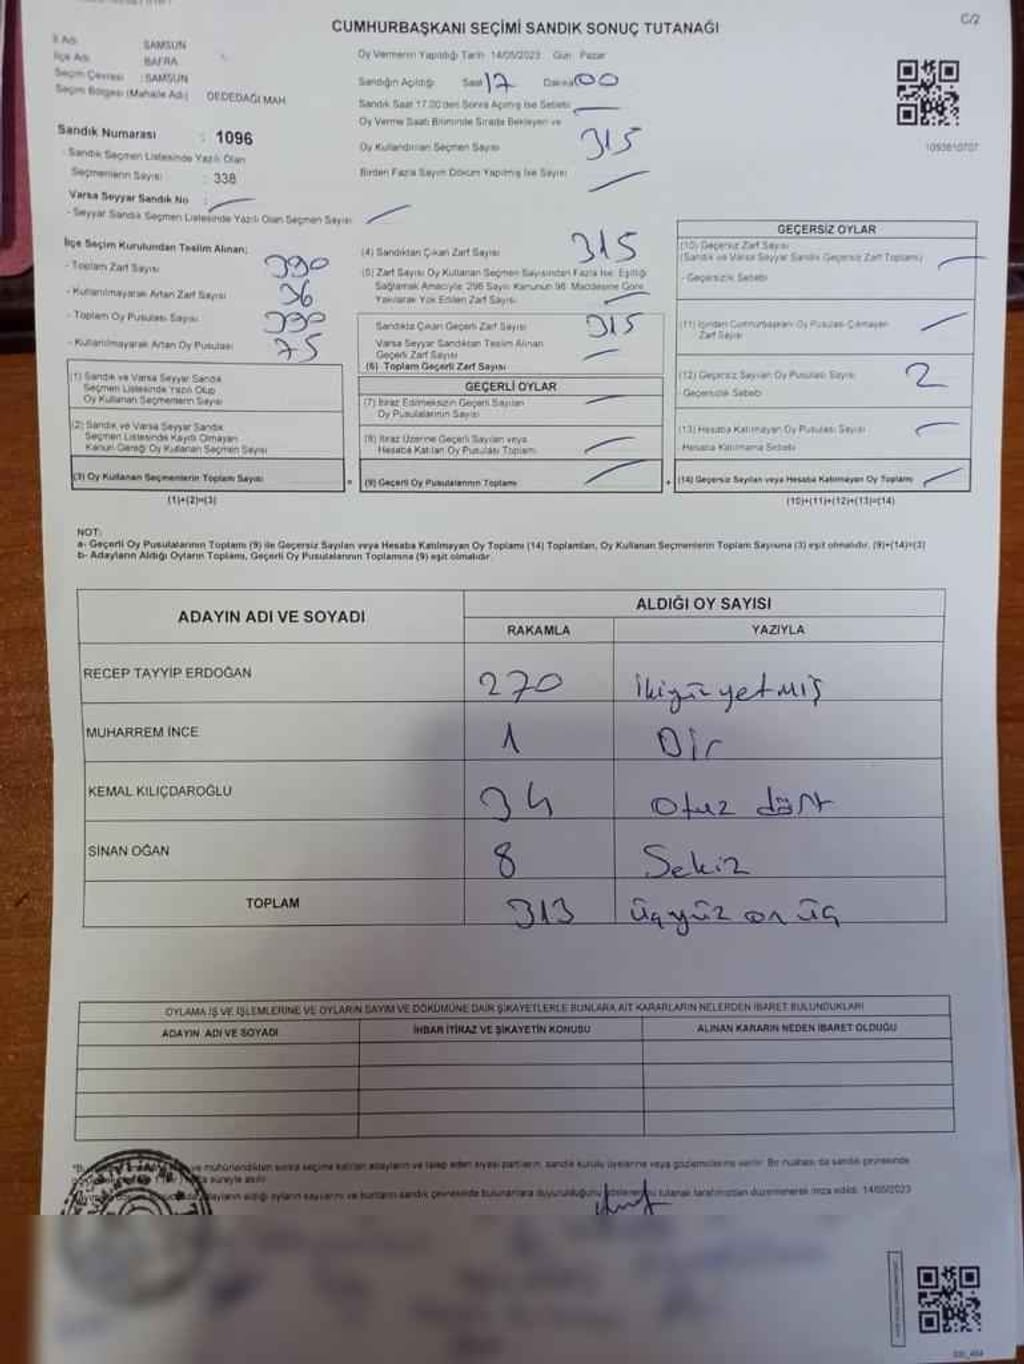 C/2
CUMHURBAŞKANI SEÇİMİ SANDIK SONUÇ TUTANAĞI
İl Adı SAMSUN
İlçe Adı BAFRA
Seçim Çevresi : SAMSUN
Seçim Bölgesi (Mahalle Adı) DEDEDAĞI MAH
Sandık Numarası : 1096
- Sandık Seçmen Listesinde Yazılı Olan
Seçmenlerin Sayısı : 338
Varsa Seyyar Sandık No :
- Seyyar Sandık Seçmen Listesinde Yazılı Olan Seçmen Sayısı
Oy Vermenin Yapıldığı Tarih 14/05/2023 Gün Pazar
Sandığın Açıldığı Saat 17 Dakika 00
Sandık Saat 17.00'den Sonra Açılmış İse Sebebi
Oy Verme Saati Bitiminde Sırada Bekleyen ve
Oy Kullandırılan Seçmen Sayısı 315
Birden Fazla Sayım Döküm Yapılmış İse Sayısı
1093610707
İlçe Seçim Kurulundan Teslim Alınan:
- Toplam Zarf Sayısı 390
- Kullanılmayarak Artan Zarf Sayısı 36
- Toplam Oy Pusulası Sayısı 390
- Kullanılmayarak Artan Oy Pusulası 75
(1) Sandık ve Varsa Seyyar Sandık
Seçmen Listesinde Yazılı Olup
Oy Kullanan Seçmenlerin Sayısı
(2) Sandık ve Varsa Seyyar Sandık
Seçmen Listesinde Kayıtlı Olmayan
Kanun Gereği Oy Kullanan Seçmen Sayısı
(3) Oy Kullanan Seçmenlerin Toplam Sayısı
(1)+(2)=(3)
(4) Sandıktan Çıkan Zarf Sayısı 315
(5) Zarf Sayısı Oy Kullanan Seçmen Sayısından Fazla İse, Eşitliği
Sağlamak Amacıyla, 298 Sayılı Kanunun 98. Maddesine Göre
Yakılarak Yok Edilen Zarf Sayısı
Sandıkta Çıkan Geçerli Zarf Sayısı 315
Varsa Seyyar Sandıktan Teslim Alınan
Geçerli Zarf Sayısı
(6) Toplam Geçerli Zarf Sayısı
GEÇERLİ OYLAR
(7) İtiraz Edilmeksizin Geçerli Sayılan
Oy Pusulalarının Sayısı
(8) İtiraz Üzerine Geçerli Sayılan veya
Hesaba Katılan Oy Pusulası Toplamı
= (9) Geçerli Oy Pusulalarının Toplamı
GEÇERSİZ OYLAR
(10) Geçersiz Zarf Sayısı
(Sandık ve Varsa Seyyar Sandık Geçersiz Zarf Toplamı)
- Geçersizlik Sebebi
(11) İçinden Cumhurbaşkanı Oy Pusulası Çıkmayan
Zarf Sayısı
(12) Geçersiz Sayılan Oy Pusulası Sayısı 2
- Geçersizlik Sebebi
(13) Hesaba Katılmayan Oy Pusulası Sayısı
- Hesaba Katılmama Sebebi
+ (14) Geçersiz Sayılan veya Hesaba Katılmayan Oy Toplamı
(10)+(11)+(12)+(13)=(14)
NOT:
a- Geçerli Oy Pusulalarının Toplamı (9) ile Geçersiz Sayılan veya Hesaba Katılmayan Oy Toplamı (14) Toplamları, Oy Kullanan Seçmenlerin Toplam Sayısına (3) eşit olmalıdır. (9)+(14)=(3)
b- Adayların Aldığı Oyların Toplamı, Geçerli Oy Pusulalarının Toplamına (9) eşit olmalıdır.
ADAYIN ADI VE SOYADI
ALDIĞI OY SAYISI
RAKAMLA YAZIYLA
RECEP TAYYİP ERDOĞAN 270 ikiyüz yetmiş
MUHARREM İNCE 1 Bir
KEMAL KILIÇDAROĞLU 34 otuz dört
SİNAN OĞAN 8 Sekiz
TOPLAM 313 üçyüz on üç
OYLAMA İŞ VE İŞLEMLERİNE VE OYLARIN SAYIM VE DÖKÜMÜNE DAİR ŞİKAYETLERLE BUNLARA AİT KARARLARIN NELERDEN İBARET BULUNDUKLARI
ADAYIN ADI VE SOYADI İHBAR İTİRAZ VE ŞİKAYETİN KONUSU ALINAN KARARIN NEDEN İBARET OLDUĞU
ve mühürlendikten sonra seçime katılan adayların ve talep eden siyasi partilerin, sandık kurulu üyelerine veya gözlemcilerine verilir. Bir nüshası da sandık çevresinde
süreyle asılır.
adayların aldığı oyların sayılarını ve bunların sandık çevresinde bulunanlara duyurulduğunu tutanak tarafımızdan düzenlenerek imza edildi. 14/05/2023